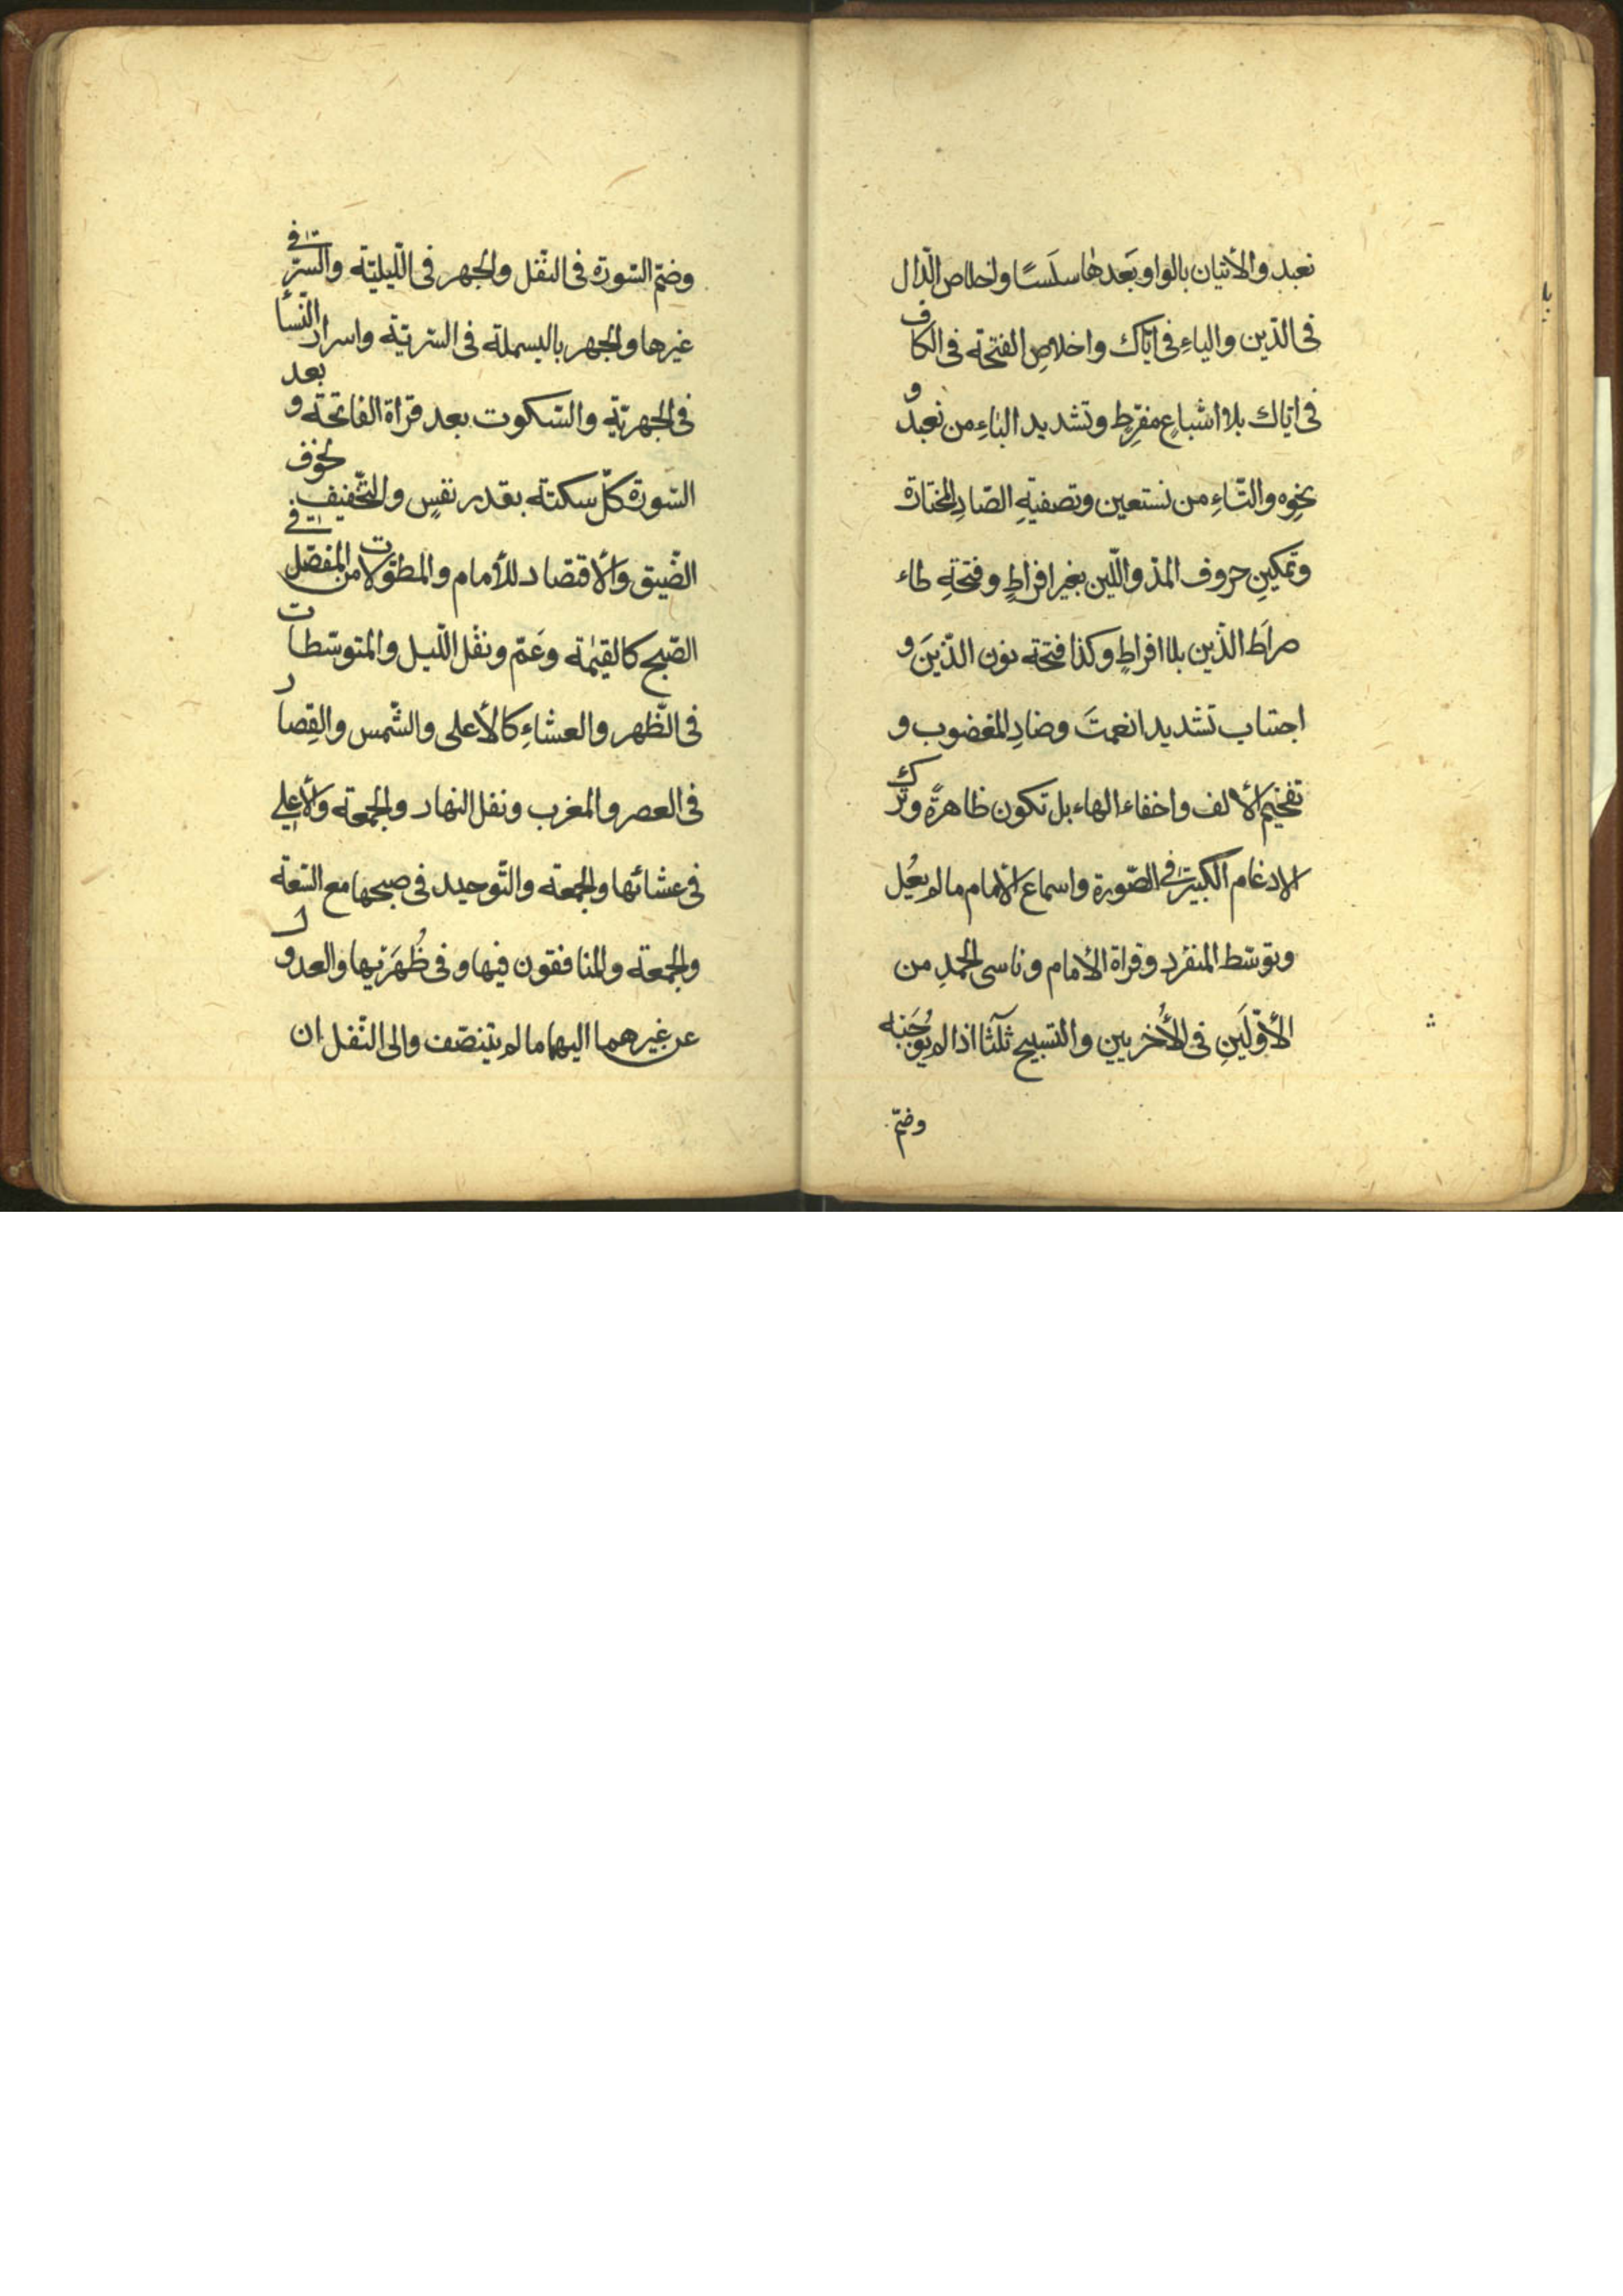 نعبد والأتيان بالواو بَعدهٰا سلَسًا واخلاص الدّال
فى الدّين والياءِ فى ايّاك واخلاصِ الفتحة فى الكاف
فى اياك بلا اشباعٍ مفرِطٍ وتشديد الباءِ من نعبدُ و
نحوِه والتّاءِ من نستعين وتصفيةِ الصّادِ المختارة
وتمكينِ حروف المدّ واللّين بغير افراطٍ وفتحةِ طاء
صراَط الذّين بلا افراطٍ وكذا فتحة نون الذّينَ و
اجتناب تشديد انعمتَ وضادِ المغضوب و
تفخيم الألف واخفاء الهاء بل تكون ظاهرةً وترك
الادغام الكبير فى الصّورة واسماع الأمام ما لم يعُل
وتوسّط المنفرد وقراة الأمام وناسى الحمدِ من
الأوّلَينِ فى الأُخريين والتسبيح ثلٰثا اذا لم يُوجَبْه
وضمّ
وضمّ السّورة فى النّفل والجهر فى اللّيليّة والسّرّ فى
غيرها والجهر بالبسملة فى السّريّة واسرار النّسأ
فى الجهريّة والسّكوت بعد قراة الفاتحة و بعد
السّورة كلّ سكتة بقدر نفسٍ والتّخفيف لخوف
الضّيق والأقتصاد للأمام والمطوّلات من المفصّل فى
الصّبح كالقيٰمة وعَمّ ونفْل اللّيل والمتوسّطات
فى الظّهر والعشاءِ كالأعلى والشّمس والقِصار
فى العصر والمغرب ونفل النهار والجمعة والأعلى
فى عشائها والجمعة والتّوحيد فى صبحها مع السّعة
والجمعة والمنافقون فيها وفى ظُهرَيها والعدول
عن غيرهما اليهما ما لم يتنصّف والى النّفل ان